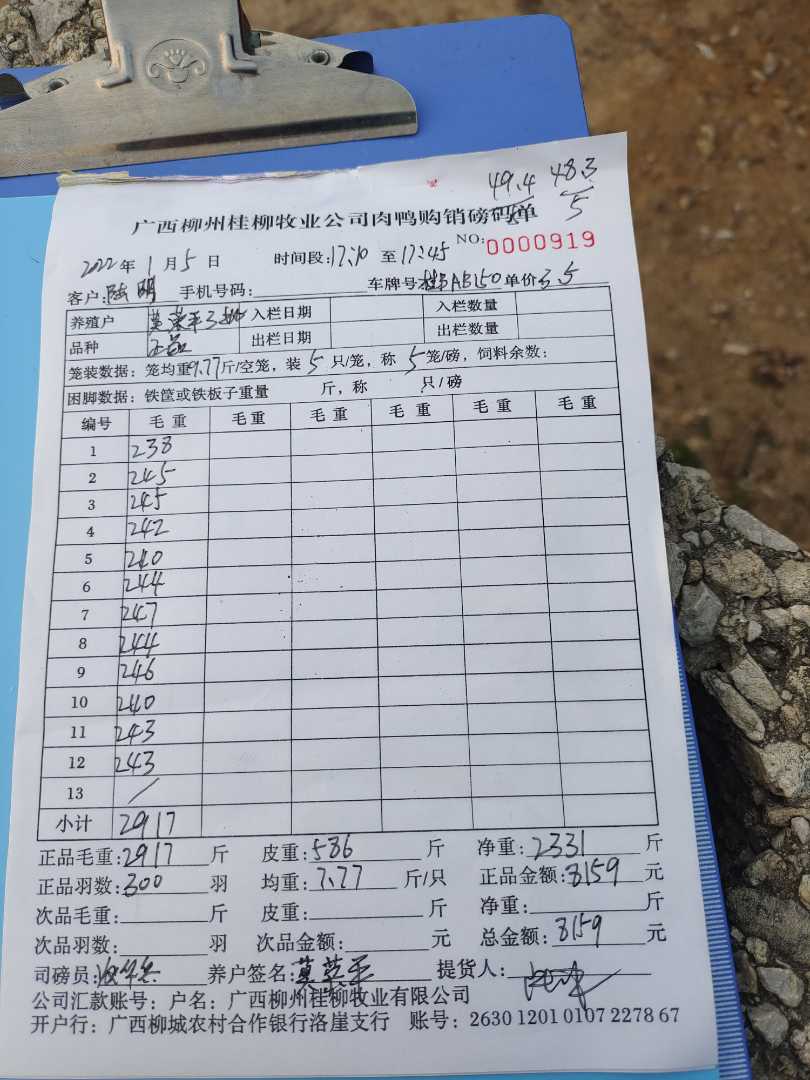 49.4 48.3
5
广西柳州桂柳牧业公司肉鸭购销磅码单
NO: 0000919
2022年1月5日 时间段:17:10 至17:45
客户:陆明 手机号码: 车牌号 AB150 单价3.5
养殖户 入栏日期 入栏数量
品种 正品 出栏日期 出栏数量
笼装数据:笼均重9.77斤/空笼,装5只/笼,称5笼/磅,饲料余数:
困脚数据:铁筐或铁板子重量 斤,称 只/磅
编号 毛重 毛重 毛重 毛重 毛重 毛重
1 238
2 245
3 245
4 242
5 240
6 244
7 247
8 244
9 246
10 240
11 243
12 243
13 /
小计 2917
正品毛重:2917斤 皮重:586斤 净重:2331斤
正品羽数:300羽 均重:7.77斤/只 正品金额:8159元
次品毛重:斤 皮重:斤 净重:斤
次品羽数:羽 次品金额:元 总金额:8159元
司磅员: 养户签名:莫荣平 提货人:
公司汇款账号:户名:广西柳州桂柳牧业有限公司
开户行:广西柳城农村合作银行洛崖支行 账号:2630 1201 0107 2278 67